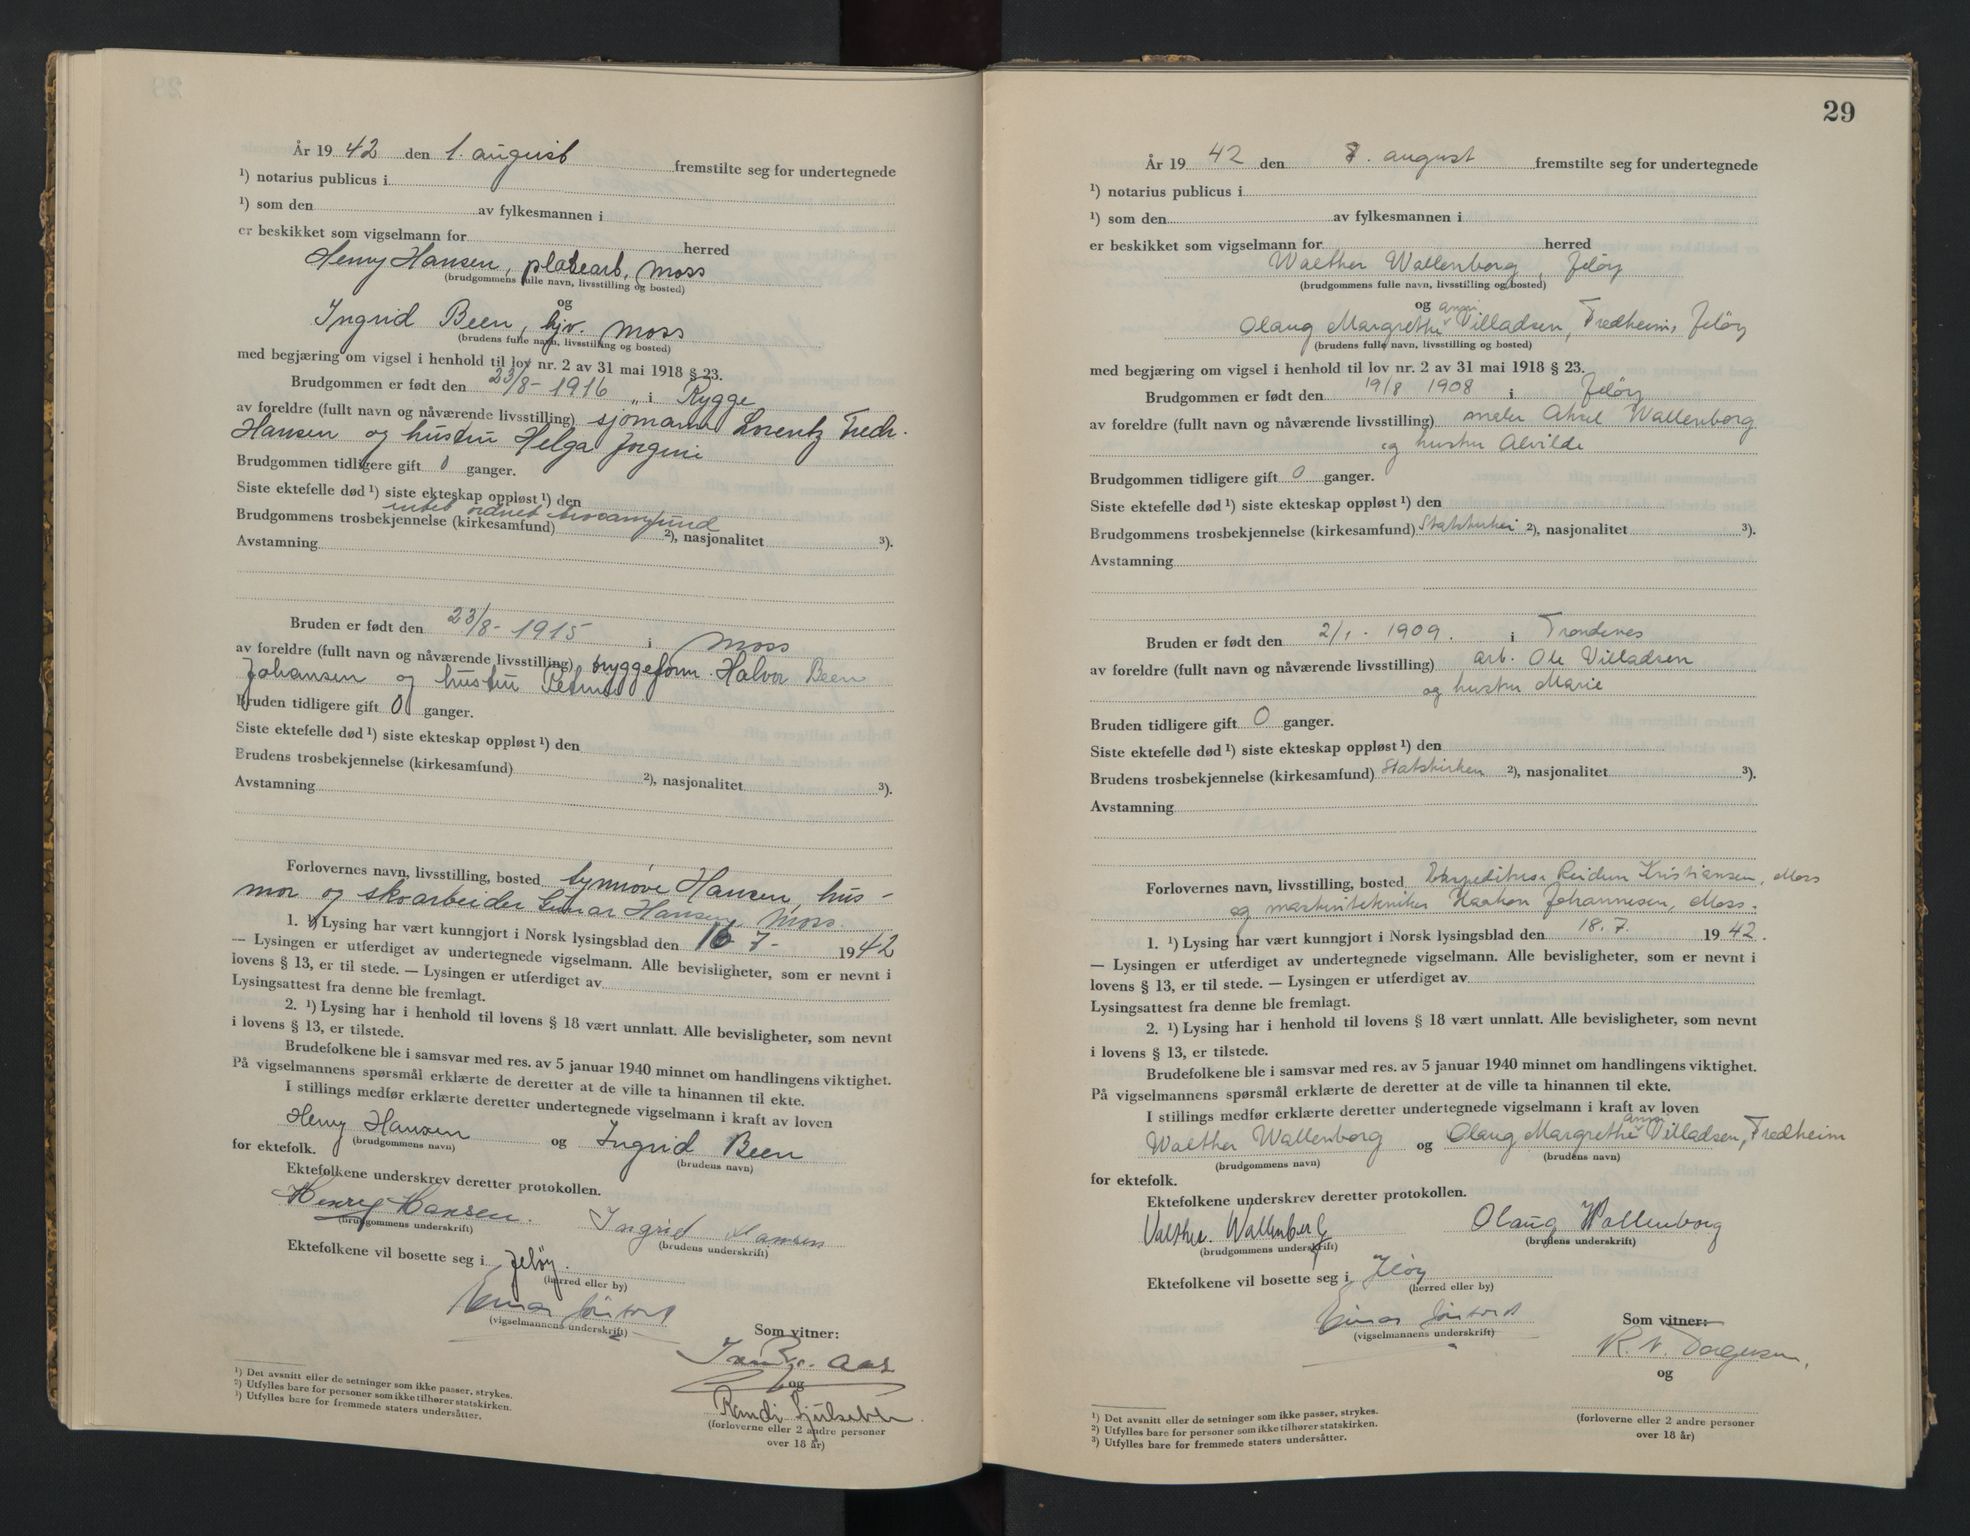 År 19 42 den 1. august fremstilte seg for undertegnede
¹) notarius publicus i
¹) som den av fylkesmannen i
er beskikket som vigselmann for herred
Henry Hansen, platearb, Moss
(brudgommens fulle navn, livsstilling og bosted)
og
Ingrid Been, hjv. Moss
(brudens fulle navn, livsstilling og bosted)
med begjæring om vigsel i henhold til lov nr. 2 av 31 mai 1918 § 23.
Brudgommen er født den 23/8- 1916 i Rygge
av foreldre (fullt navn og nåværende livsstilling) sjømann Lorentz Fredr.
Hansen og hustru Helga Jorgine
Brudgommen tidligere gift 0 ganger.
Siste ektefelle død ¹) siste ekteskap oppløst ¹) den
intet ordnet trossamfund
Brudgommens trosbekjennelse (kirkesamfund) ²), nasjonalitet ³).
Avstamning
Bruden er født den 23/8- 1915 i Moss
av foreldre (fullt navn og nåværende livsstilling) bryggeform. Halvor Been
Johansen og hustru
Bruden tidligere gift 0 ganger.
Siste ektefelle død ¹) siste ekteskap oppløst ¹) den
Brudens trosbekjennelse (kirkesamfund) ²), nasjonalitet ³).
Avstamning
Forlovernes navn, livsstilling, bosted Synnøve Hansen, hus-
mor og skoarbeider Gunnar Hansen, Moss.
1. ¹) Lysing har vært kunngjort i Norsk lysingsblad den 16-7- 1942
— Lysingen er utferdiget av undertegnede vigselmann. Alle bevisligheter, som er nevnt i
lovens § 13, er til stede. — Lysingen er utferdiget av
Lysingsattest fra denne ble fremlagt.
2. ¹) Lysing har i henhold til lovens § 18 vært unnlatt. Alle bevisligheter, som nevnt
i lovens § 13, er tilstede.
Brudefolkene ble i samsvar med res. av 5 januar 1940 minnet om handlingens viktighet.
På vigselmannens spørsmål erklærte de deretter at de ville ta hinannen til ekte.
I stillings medfør erklærte deretter undertegnede vigselmann i kraft av loven
Henry Hansen og Ingrid Been
for ektefolk. (brudgommens navn) (brudens navn)
Ektefolkene underskrev deretter protokollen.
Henry Hansen. Ingrid Hansen
(brudgommens underskrift) (brudens underskrift)
Ektefolkene vil bosette seg i Jeløy.
(herred eller by)
(vigselmannens underskrift)
Som vitner:
Aas
og
Randi
(forloverne eller 2 andre personer
over 18 år)
¹) Det avsnitt eller de setninger som ikke passer, strykes.
²) Utfylles bare for personer som ikke tilhører statskirken.
³) Utfylles bare for fremmede staters undersåtter.
29
År 19 42 den 8. august fremstilte seg for undertegnede
¹) notarius publicus i
¹) som den av fylkesmannen i
er beskikket som vigselmann for herred
Walther Wallenborg, Jeløy
(brudgommens fulle navn, livsstilling og bosted)
og
Olaug Margrethe Anni Villadsen, Fredheim, Jeløy
(brudens fulle navn, livsstilling og bosted)
med begjæring om vigsel i henhold til lov nr. 2 av 31 mai 1918 § 23.
Brudgommen er født den 19/8 1908 i Jeløy
av foreldre (fullt navn og nåværende livsstilling) maler Aksel Wallenborg
og hustru Alvilde
Brudgommen tidligere gift 0 ganger.
Siste ektefelle død ¹) siste ekteskap oppløst ¹) den
Brudgommens trosbekjennelse (kirkesamfund) ²), nasjonalitet ³).
Avstamning
Bruden er født den 2/1 - 1909. i Trondenes
av foreldre (fullt navn og nåværende livsstilling) arb. Ole Villadsen
og hustru Marie
Bruden tidligere gift 0 ganger.
Siste ektefelle død ¹) siste ekteskap oppløst ¹) den
Brudens trosbekjennelse (kirkesamfund) Statskirken ²), nasjonalitet ³).
Avstamning
Forlovernes navn, livsstilling, bosted Ekspeditrise Reidun Kristiansen, Moss
og maskintekniker Haakon Johannesen, Moss.
1. ¹) Lysing har vært kunngjort i Norsk lysingsblad den 18.7. 1942.
— Lysingen er utferdiget av undertegnede vigselmann. Alle bevisligheter, som er nevnt i
lovens § 13, er til stede. — Lysingen er utferdiget av
Lysingsattest fra denne ble fremlagt.
2. ¹) Lysing har i henhold til lovens § 18 vært unnlatt. Alle bevisligheter, som nevnt
i lovens § 13, er tilstede.
Brudefolkene ble i samsvar med res. av 5 januar 1940 minnet om handlingens viktighet.
På vigselmannens spørsmål erklærte de deretter at de ville ta hinannen til ekte.
I stillings medfør erklærte deretter undertegnede vigselmann i kraft av loven
Walther Wallenborg og Olaug Margrethe Anni Villadsen, Fredheim
(brudgommens navn) (brudens navn)
for ektefolk.
Ektefolkene underskrev deretter protokollen.
Valther Wallenberg Olaug Wallenborg
(brudgommens underskrift) (brudens underskrift)
Ektefolkene vil bosette seg i Jeløy
(herred eller by)
(vigselmannens underskrift)
Som vitner:
og
(forloverne eller 2 andre personer
over 18 år)
¹) Det avsnitt eller de setninger som ikke passer, strykes.
²) Utfylles bare for personer som ikke tilhører statskirken.
³) Utfylles bare for fremmede staters undersåtter.